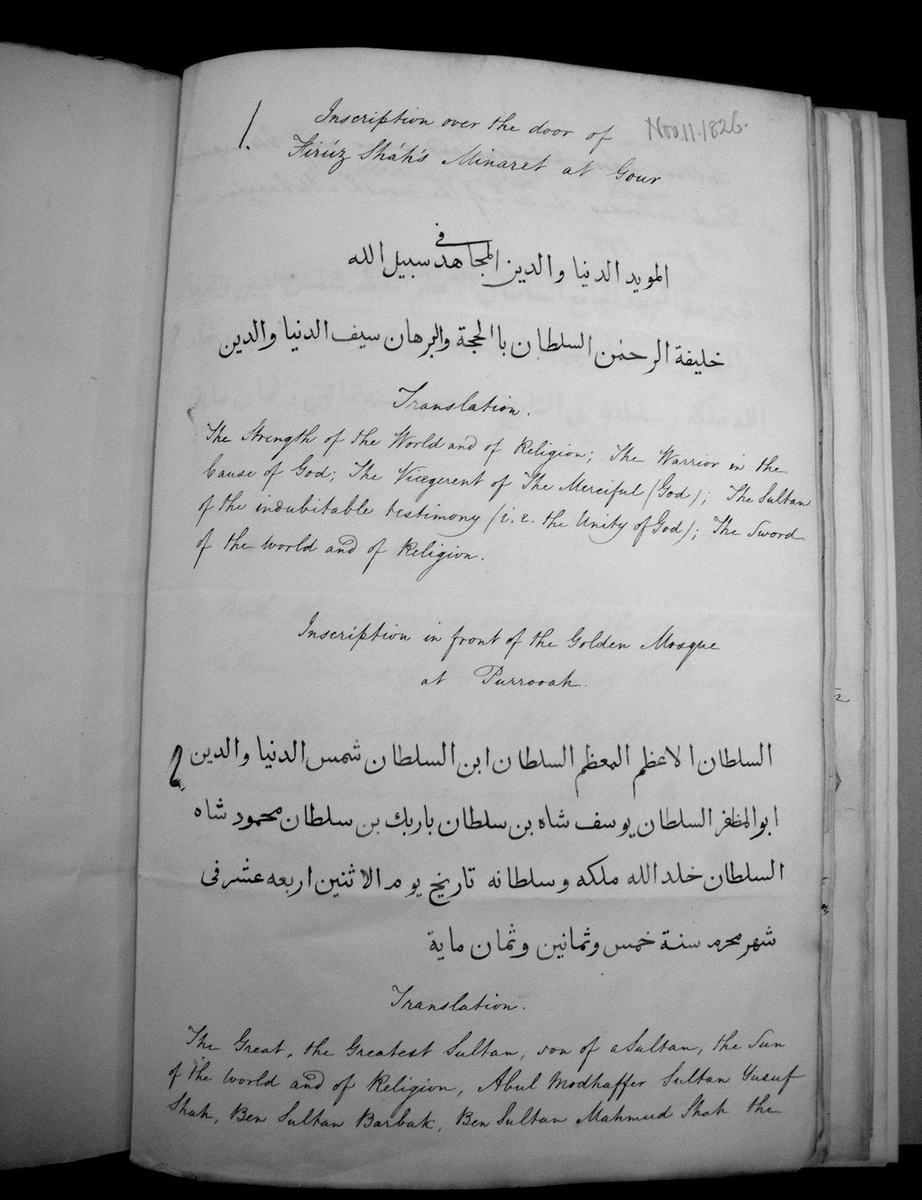 1. Inscription over the door of
Nov. 11. 1826.
Firúz Sháh's Minaret at Gour
المويد الدنيا والدين المجاهد في سبيل الله
خليفة الرحمن السلطان باالحجة والبرهان سيف الدنيا والدين
Translation.
The Strength of the World and of Religion; The Warrior in the
Cause of God; The Vicegerent of The Merciful (God); The Sultan
of the indubitable testimony (i.e. the Unity of God); The Sword
of the world and of Religion.
Inscription in front of the Golden Mosque
at Purrooah.
2. السلطان الاعظم المعظم السلطان ابن السلطان شمس الدنيا والدين
ابوالمظفر السلطان يوسف شاه بن سلطان باربك بن سلطان محمود شاه
السلطان خلد الله ملكه وسلطانه تاريخ يوم الاثنين اربعه عشر فى
شهر محرم سنة خمس وثمانين وثمان ماية
Translation.
The Great, the Greatest Sultan, son of a Sultan, the Sun
of the world and of Religion, Abul Modhaffer Sultan Yusuf
Shah, Ben Sultan Barbak, Ben Sultan Mahmud Shah the